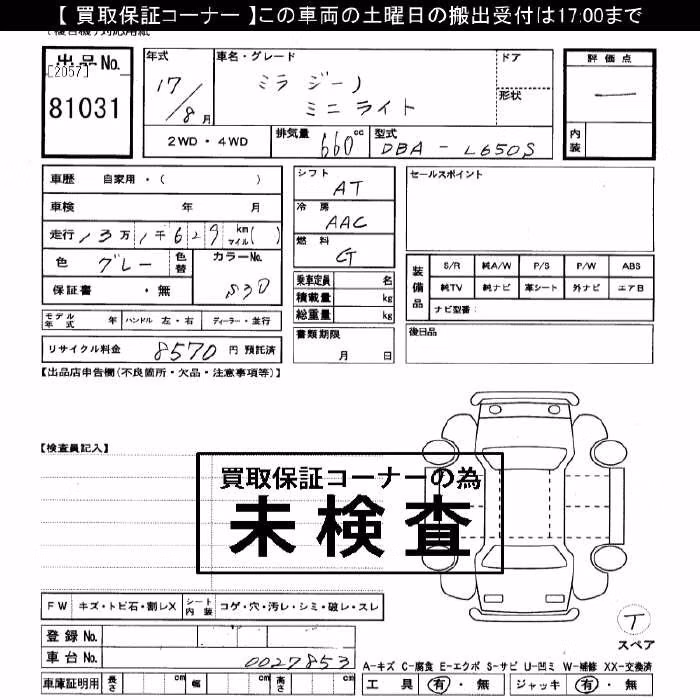 【 買取保証コーナー 】この車両の土曜日の搬出受付は17:00まで
(複合機)対応用紙
出品No.
[2057]
81031
年式
17/8月
車名・グレード
ミラ ジーノ
ミニライト
ドア
形状
評価点
—
内装
2WD・4WD
排気量
660cc
型式
DBA - L650S
車歴 自家用・( )
車検 年 月
走行 13万1千629 km マイル( )
色 グレー 色替
カラーNo.
S30
保証書 ・無
シフト
AT
冷房
AAC
燃料
G
乗車定員 名
積載量 kg
総重量 kg
書類期限
月 日
セールスポイント
装備品
S/R 純A/W P/S P/W ABS
純TV 純ナビ 革シート 外ナビ エアB
ナビ型番:
後日品
モデル年式 年 ハンドル 左・右 ディーラー・並行
リサイクル料金 8570 円 預託済
【出品店申告欄(不良箇所・欠品・注意事項等)】
【検査員記入】
買取保証コーナーの為
未検査
FW キズ・トビ石・割レX シート内装 コゲ・穴・汚レ・シミ・破レ・スレ
登録No.
車台No. 0027853
車庫証明用 長さ cm 幅 cm 高さ cm
T
スペア
A-キズ C-腐食 E-エクボ S-サビ U-凹ミ W-補修 XX-交換済
工具 有・無 ジャッキ 有・無